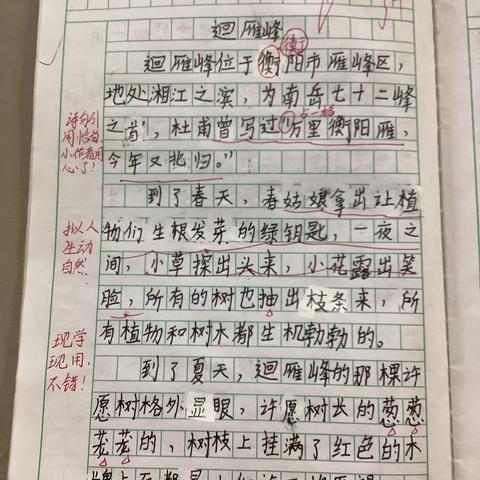 迴雁峰
迴雁峰位于衡阳市雁峰区，
衡
地处湘江之滨，为南岳七十二峰
之首，杜甫曾写过“万里衡阳雁，
占一格
今年又北归。”
诗句引
用恰当
小作者用
心了！
到了春天，春姑娘拿出让植
物们生根发芽的绿钥匙，一夜之
间，小草探出头来，小花露出笑
脸，所有的树也抽出枝条来，所
有植物和树木都生机勃勃的。
拟人
生动
自然！
现学
现用，
不错！
到了夏天，迴雁峰的那棵许
愿树格外显眼，许愿树长的葱葱
茏茏的，树枝上挂满了红色的木